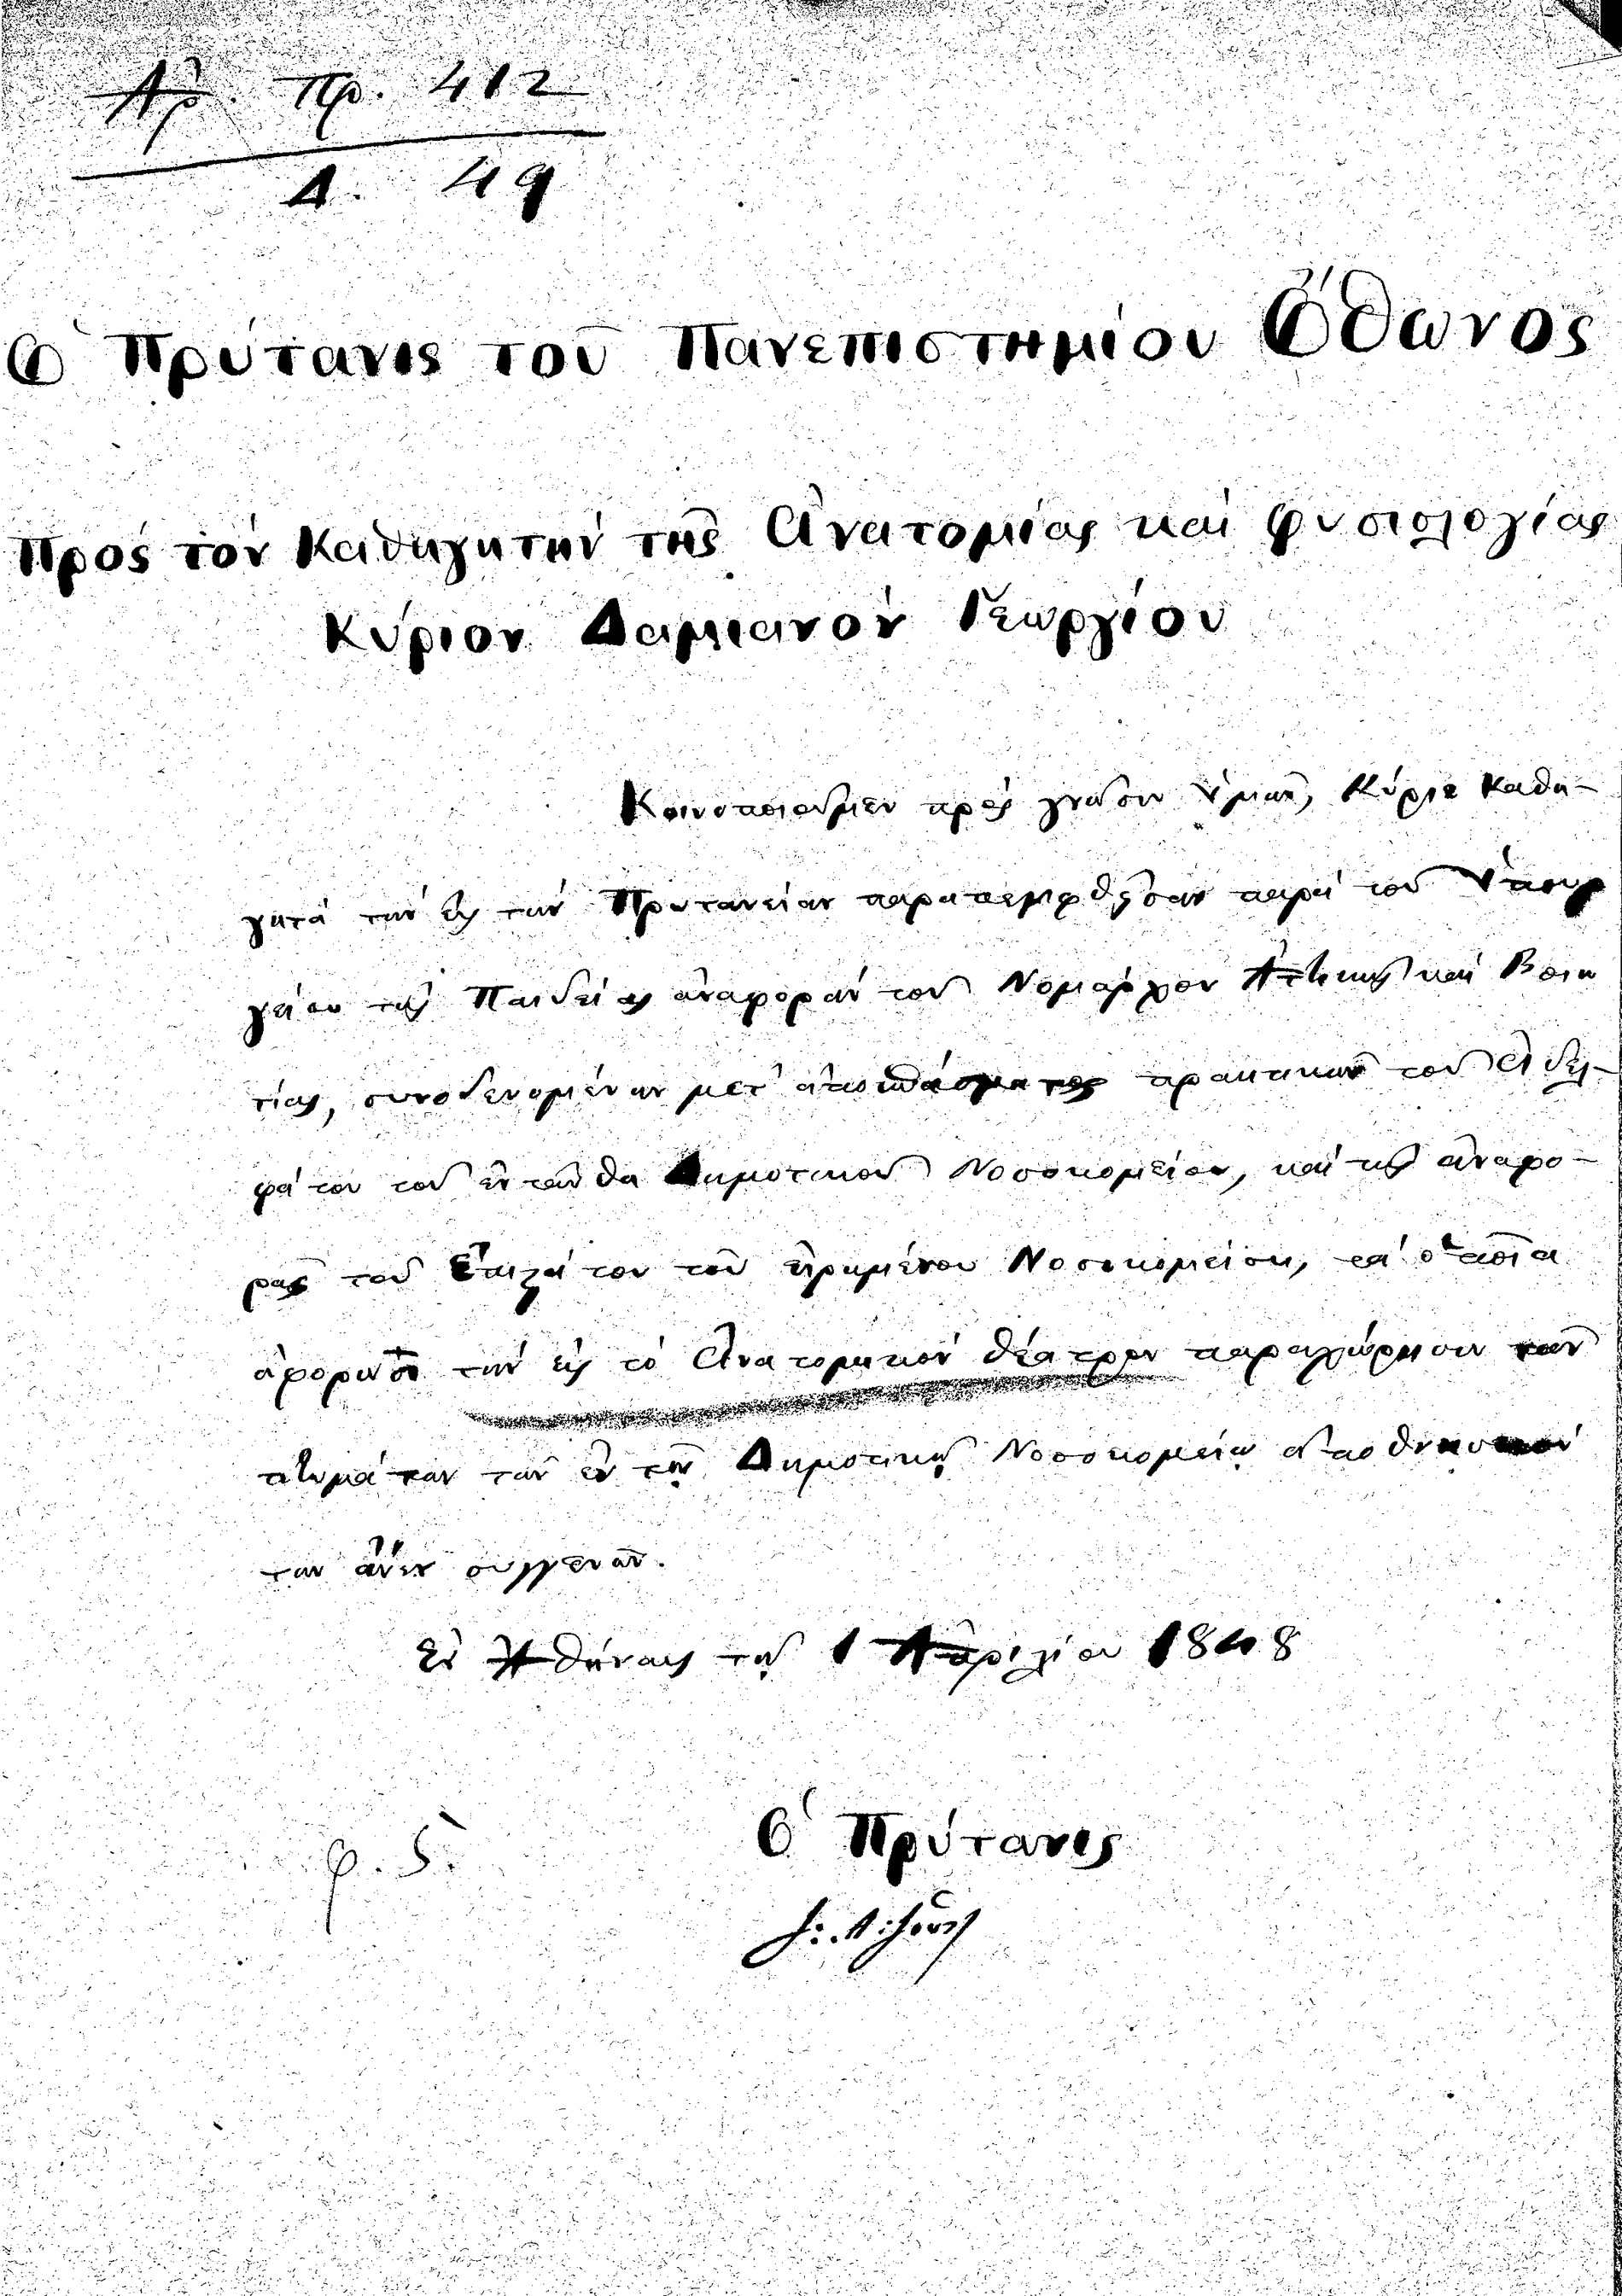 Ἀρ. Πρ. 412
Δ. 49
Ὁ Πρύτανις τοῦ Πανεπιστημίου Ὄθωνος
Πρός τόν Καθηγητήν τῆς Ἀνατομίας καί φυσιολογίας
Κύριον Δαμιανόν Γεωργίου
Κοινοποιοῦμεν πρός γνῶσιν Ὑμῶν, Κύριε Καθη-
γητά τήν εἰς τήν Πρυτανείαν παραπεμφθεῖσαν παρά τοῦ Ὑπουρ
γείου τῆς Παιδείας ἀναφοράν τοῦ Νομάρχου Ἀττικῆς καί Βοιω
τίας, συνοδευομένην μετ' ἀποσπάσματος πρακτικῶν τοῦ Ἀδελ-
φάτου τοῦ ἐνταῦθα Δημοτικοῦ Νοσοκομείου, καί τῆς ἀναφο-
ρᾶς τοῦ Ἐπιστάτου τοῦ εἰρημένου Νοσοκομείου, τά ὁποῖα
ἀφορῶσι τήν εἰς τό Ἀνατομικόν θέατρον παραχώρησιν τῶν
πτωμάτων τῶν ἐν τῷ Δημοτικῷ Νοσοκομείῳ ἀποθνησκόν
των ἄνευ συγγενῶν.
Ἐν Ἀθήναις τῇ 1 Ἀπριλίου 1848
Ὁ Πρύτανις
φ. 5.